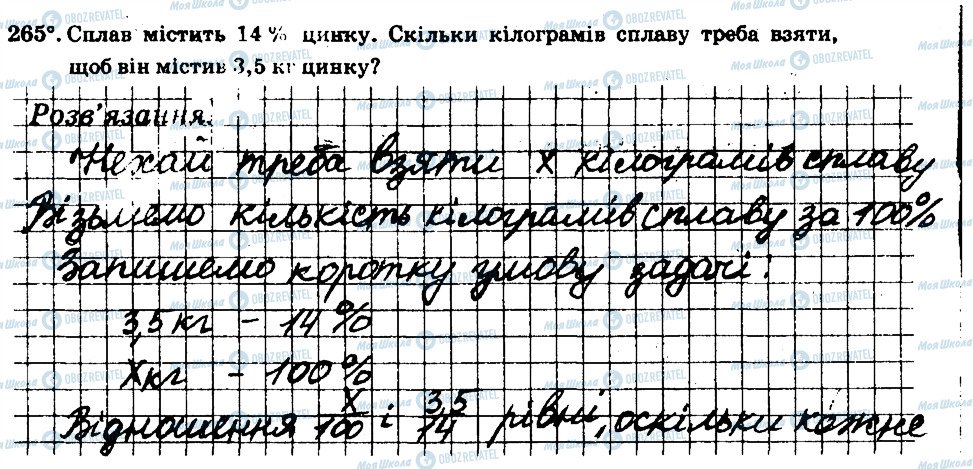 265°. Сплав містить 14 % цинку. Скільки кілограмів сплаву треба взяти,
щоб він містив 3,5 кг цинку?
Розв'язання:
Нехай треба взяти х кілограмів сплаву
Візьмемо кількість кілограмів сплаву за 100%
Запишемо коротку умову задачі:
3,5 кг – 14 %
х кг – 100 %
Відношення х/100 і 3,5/14 рівні, оскільки кожне